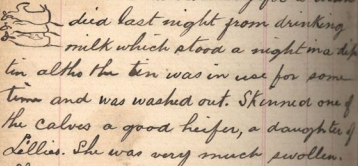 died last night from drinking
milk which stood a night in a
tin altho the tin was in use for some
time and was washed out. Skinned one of
the calves a good heifer, a daughter of
Lillies. She was very much swollen.